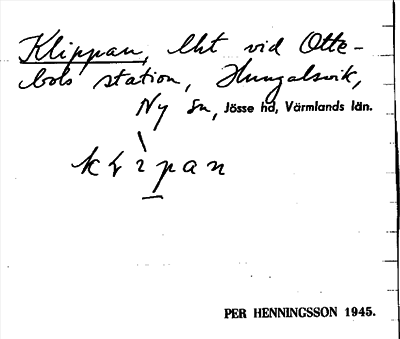 Klippan, lht vid Otte-
bols station, Hungalsvik,
Ny sn, Jösse hd, Värmlands län.
PER HENNINGSSON 1945.